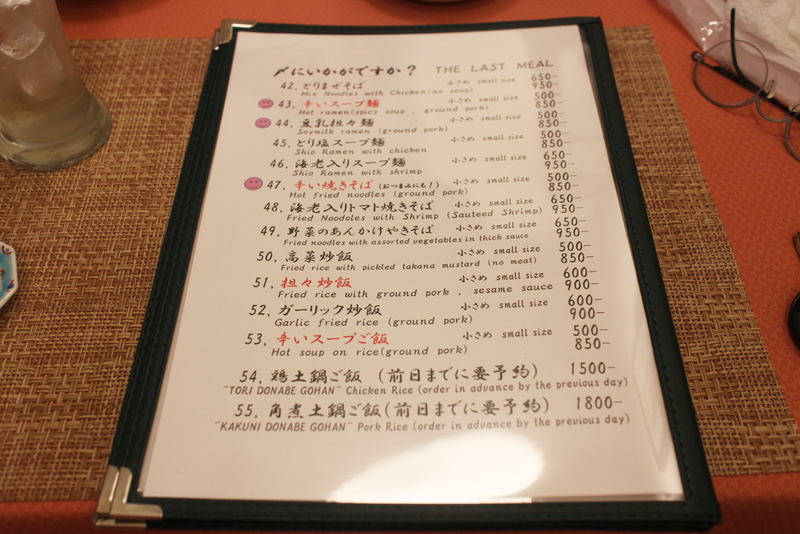 〆にいかがですか？ THE LAST MEAL
42. とりまぜそば 小さめ small size 650-
Mix Noodles with Chicken(no soup) 950-
43. 辛いスープ麺 小さめ small size 500-
Hot ramen(spicy soup , ground pork) 850-
44. 豆乳担々麺 小さめ small size 500-
Soymilk ramen (ground pork) 850-
45. とり塩スープ麺 小さめ small size 500-
Shio Ramen with chicken 850-
46. 海老入りスープ麺 小さめ small size 650-
Shio Ramen with shrimp 950-
47. 辛い焼きそば (おつまみにも!) 小さめ small size 500-
Hot fried noodles (ground pork) 850-
48. 海老入りトマト焼きそば 小さめ small size 650-
Fried Noodoles with Shrimp (Sauteed Shrimp) 950-
49. 野菜のあんかけやきそば 小さめ small size 650-
Fried noodles with assorted vegetables in thick sauce 950-
50. 高菜炒飯 小さめ small size 500-
Fried rice with pickled takana mustard (no meat) 850-
51. 担々炒飯 小さめ small size 600-
Fried rice with ground pork , sesame sauce 900-
52. ガーリック炒飯 小さめ small size 600-
Garlic fried rice (ground pork) 900-
53. 辛いスープご飯 小さめ small size 500-
Hot soup on rice(ground pork) 850-
54. 鶏土鍋ご飯 (前日までに要予約) 1500-
"TORI DONABE GOHAN" Chicken Rice (order in advance by the previous day)
55. 角煮土鍋ご飯(前日までに要予約) 1800-
"KAKUNI DONABE GOHAN" Pork Rice (order in advance by the previous day)